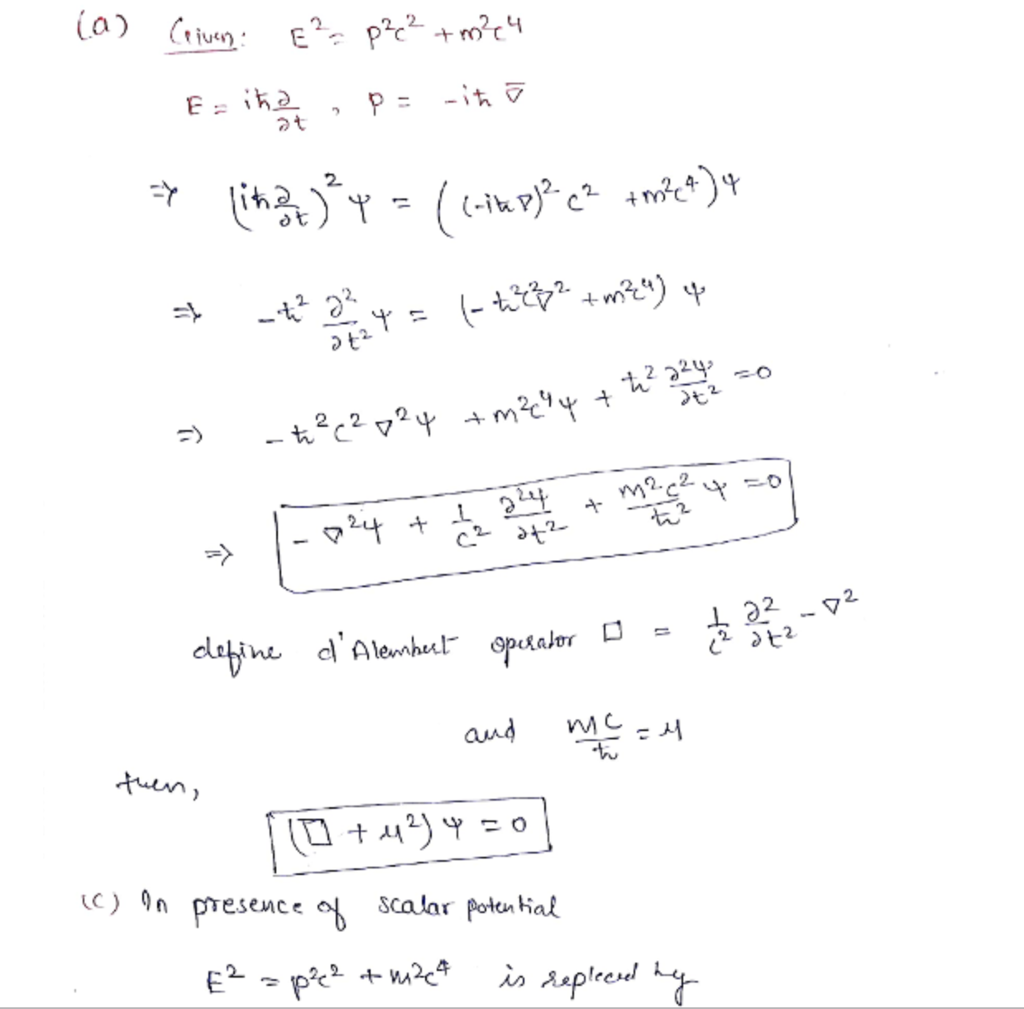 (a) Given: E² = p²c² + m²c⁴
E = iħ ∂/∂t , p = -iħ ∇̅
⇒ (iħ ∂/∂t)² ψ = ((-iħ∇)² c² + m²c⁴) ψ
⇒ -ħ² ∂²/∂t² ψ = (-ħ²c²∇² + m²c⁴) ψ
⇒ -ħ²c²∇²ψ + m²c⁴ψ + ħ² ∂²ψ/∂t² = 0
⇒ -∇²ψ + 1/c² ∂²ψ/∂t² + m²c²/ħ² ψ = 0
define d'Alembert operator □ = 1/c² ∂²/∂t² - ∇²
and mc/ħ = μ
then,
(□ + μ²) ψ = 0
(c) In presence of scalar potential
E² = p²c² + m²c⁴ is replaced by